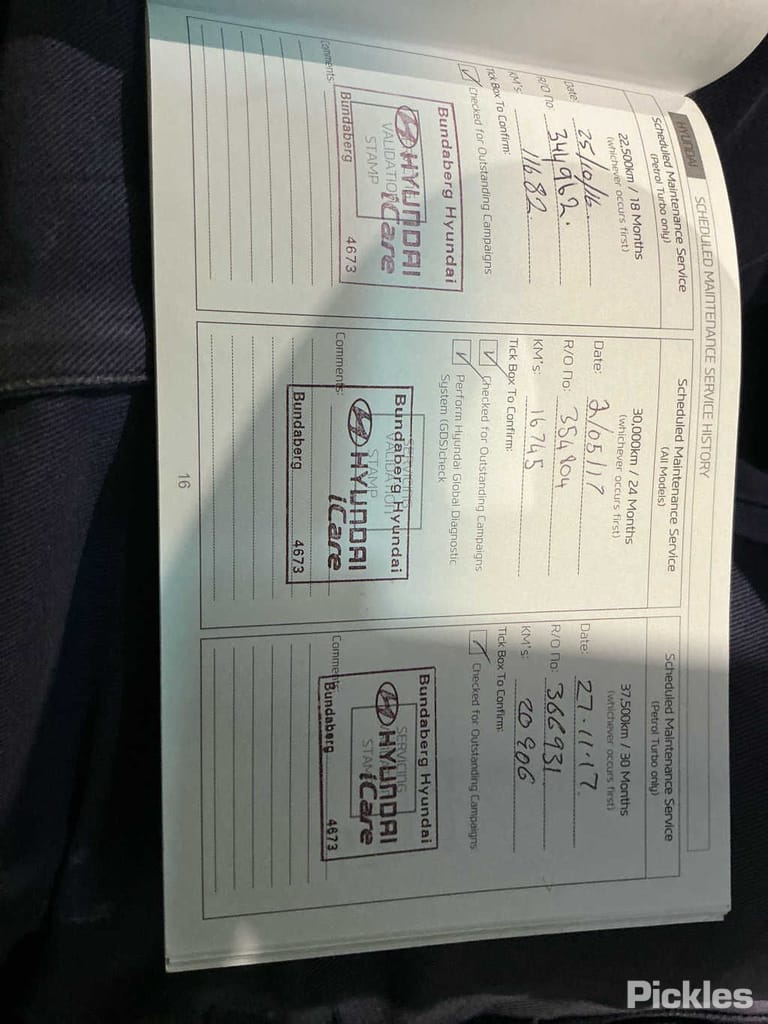 HYUNDAI
SCHEDULED MAINTENANCE SERVICE HISTORY
Scheduled Maintenance Service
(Petrol Turbo only)
22,500km / 18 Months
(whichever occurs first)
Date: 25/10/16
R/O no: 344962.
KM's: 11682
Tick Box To Confirm:
Checked for Outstanding Campaigns
Bundaberg Hyundai
HYUNDAI
iCare
VALIDATION
STAMP
Bundaberg 4673
Comments:
Scheduled Maintenance Service
(All Models)
30,000km / 24 Months
(whichever occurs first)
Date: 2/05/17
R/O no: 354904
KM's: 16745
Tick Box To Confirm:
Checked for Outstanding Campaigns
Perform Hyundai Global Diagnostic
System (GDS)check
Bundaberg Hyundai
SERVICING
VALIDATION
STAMP
HYUNDAI
iCare
Comments:
Bundaberg 4673
Scheduled Maintenance Service
(Petrol Turbo only)
37,500km / 30 Months
(whichever occurs first)
Date: 27.11.17.
R/O no: 366931.
KM's: 20906
Tick Box To Confirm:
Checked for Outstanding Campaigns
Bundaberg Hyundai
SERVICING
HYUNDAI
STAMP
iCare
Comments:
Bundaberg 4673
16
Pickles